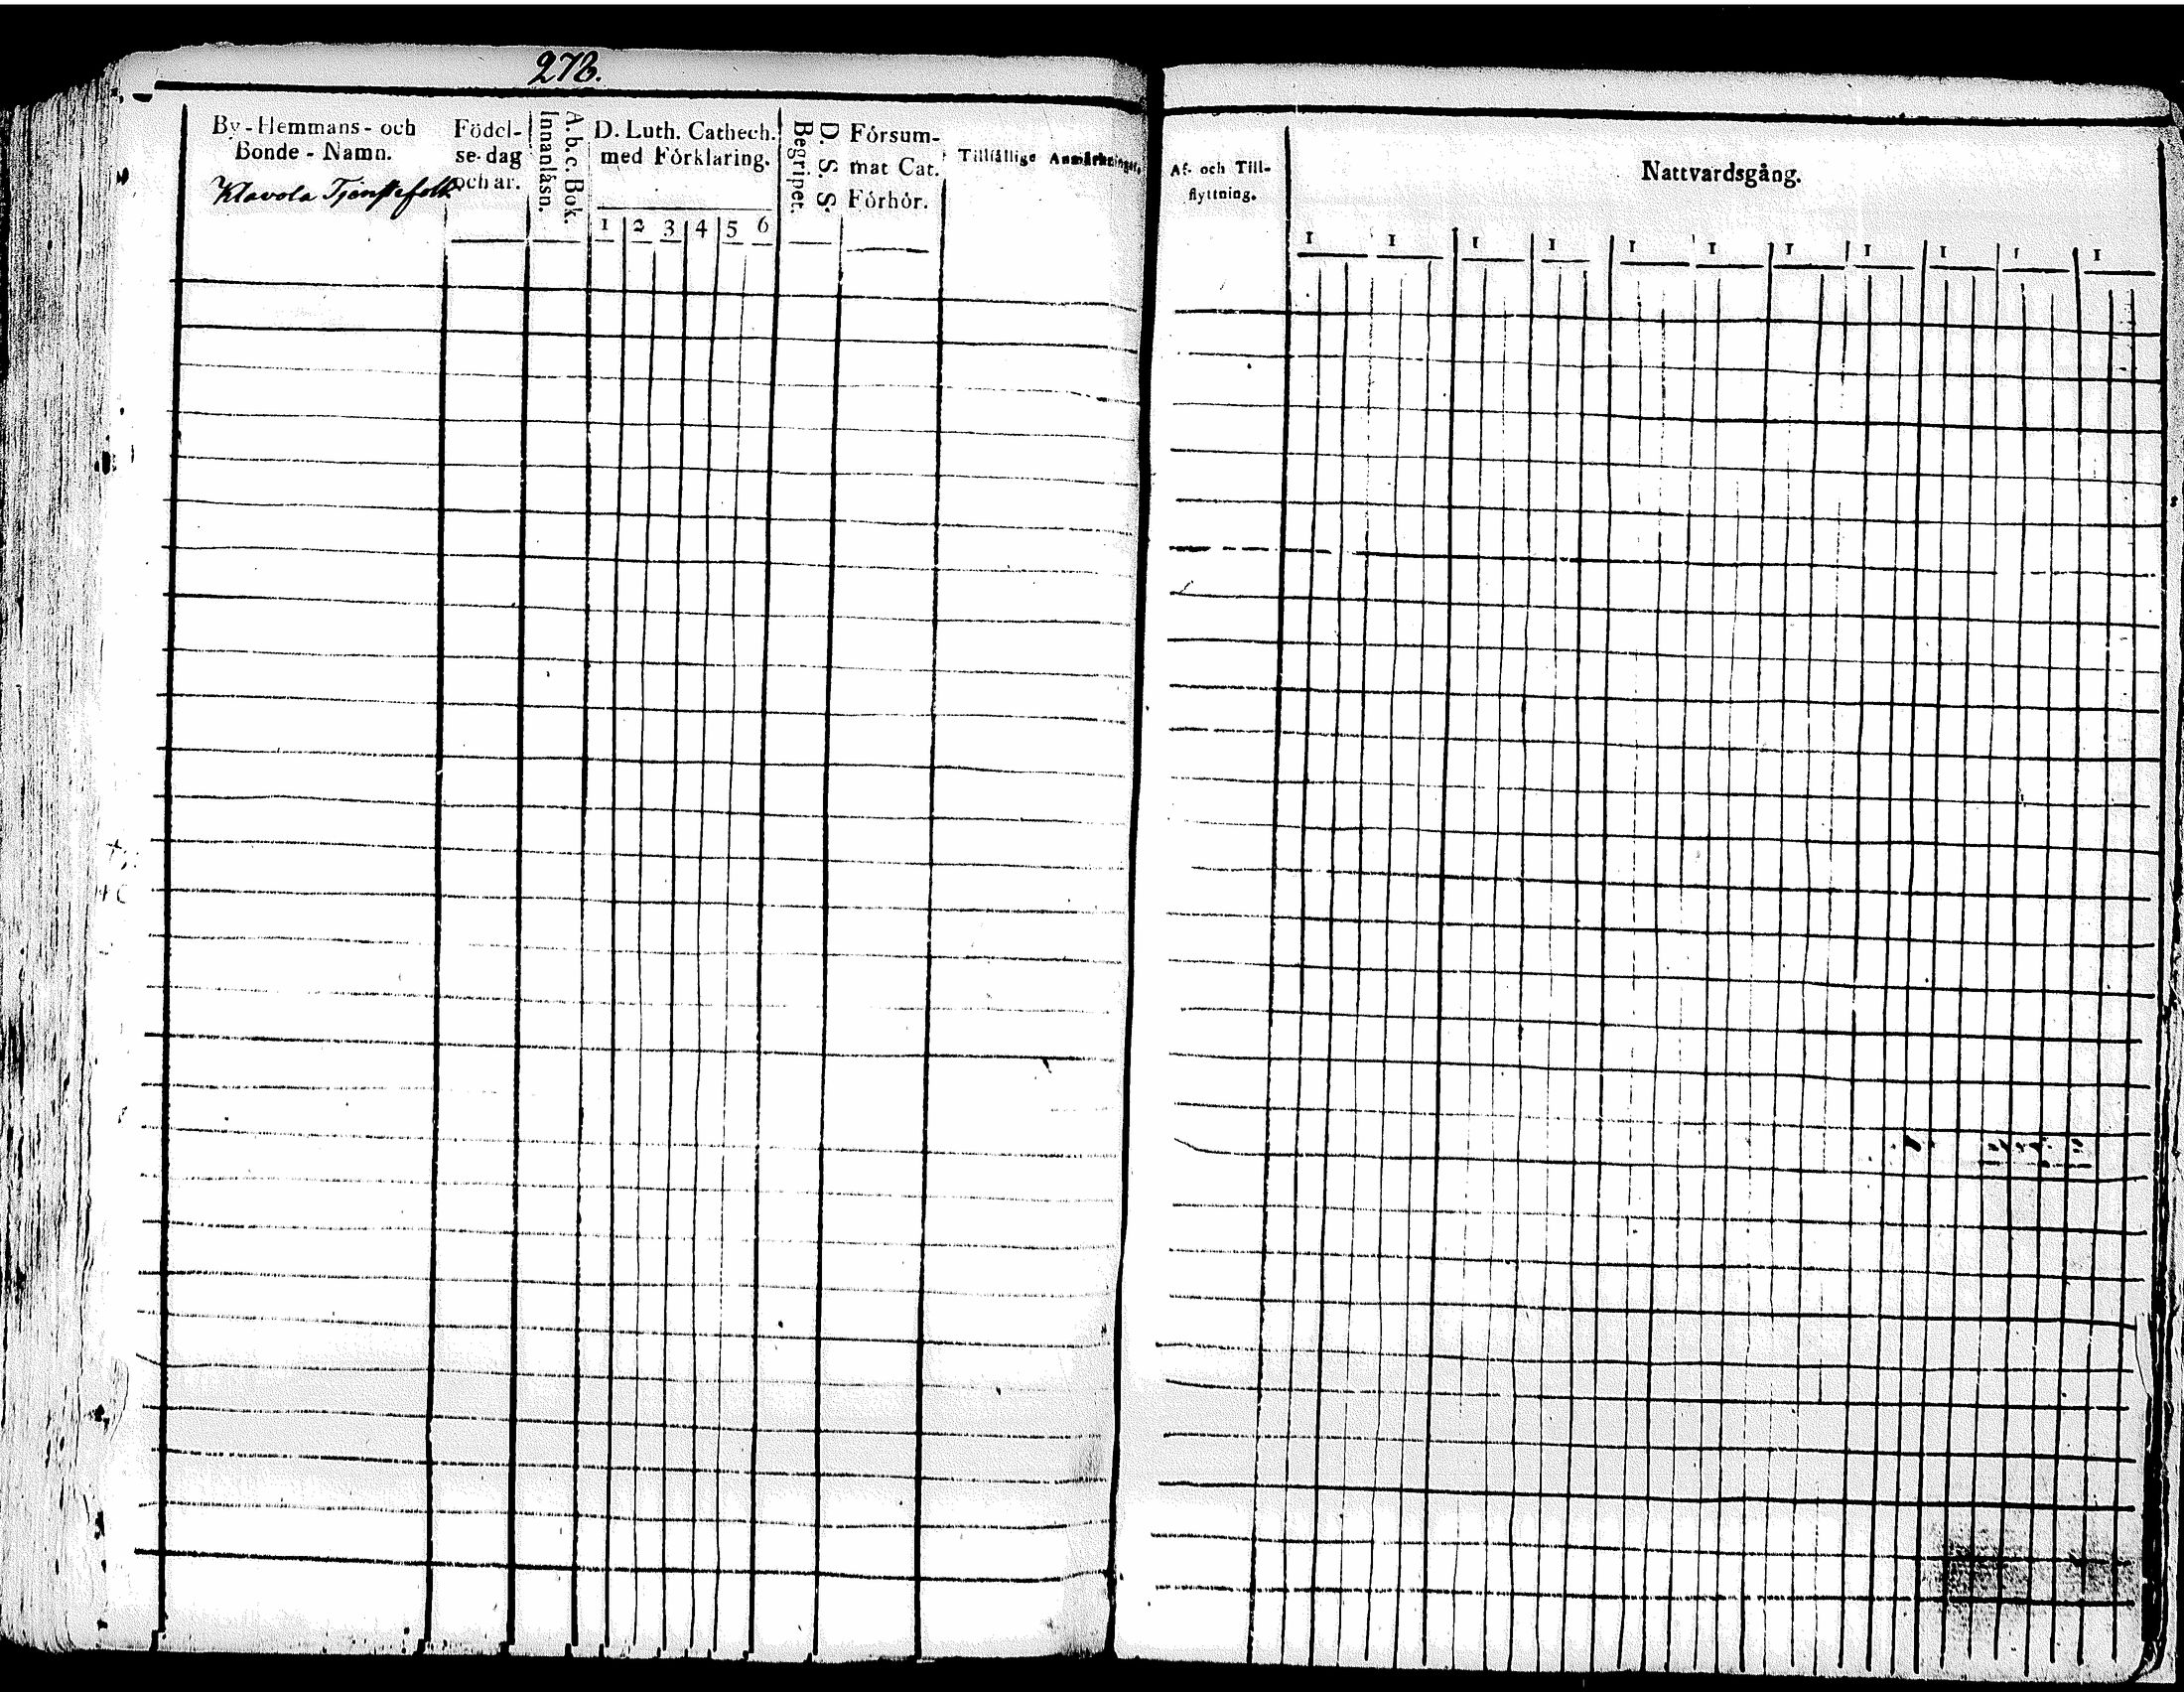 273.
By-Hemmans- och
Bonde-Namn.
Klavola Tjenstefolk
Födel-
se-dag
och ar.
A. b. c. Bok.
Innanläsn.
D. Luth. Cathech.
med Förklaring.
1 2 3 4 5 6
D. S. S.
Begriper.
Försum-
mat Cat.
Förhör.
Tillfällige Anmärkningar.
Af- och Till-
flyttning.
Nattvardsgång.
1 1 1 1 1 1 1 1 1 1 1